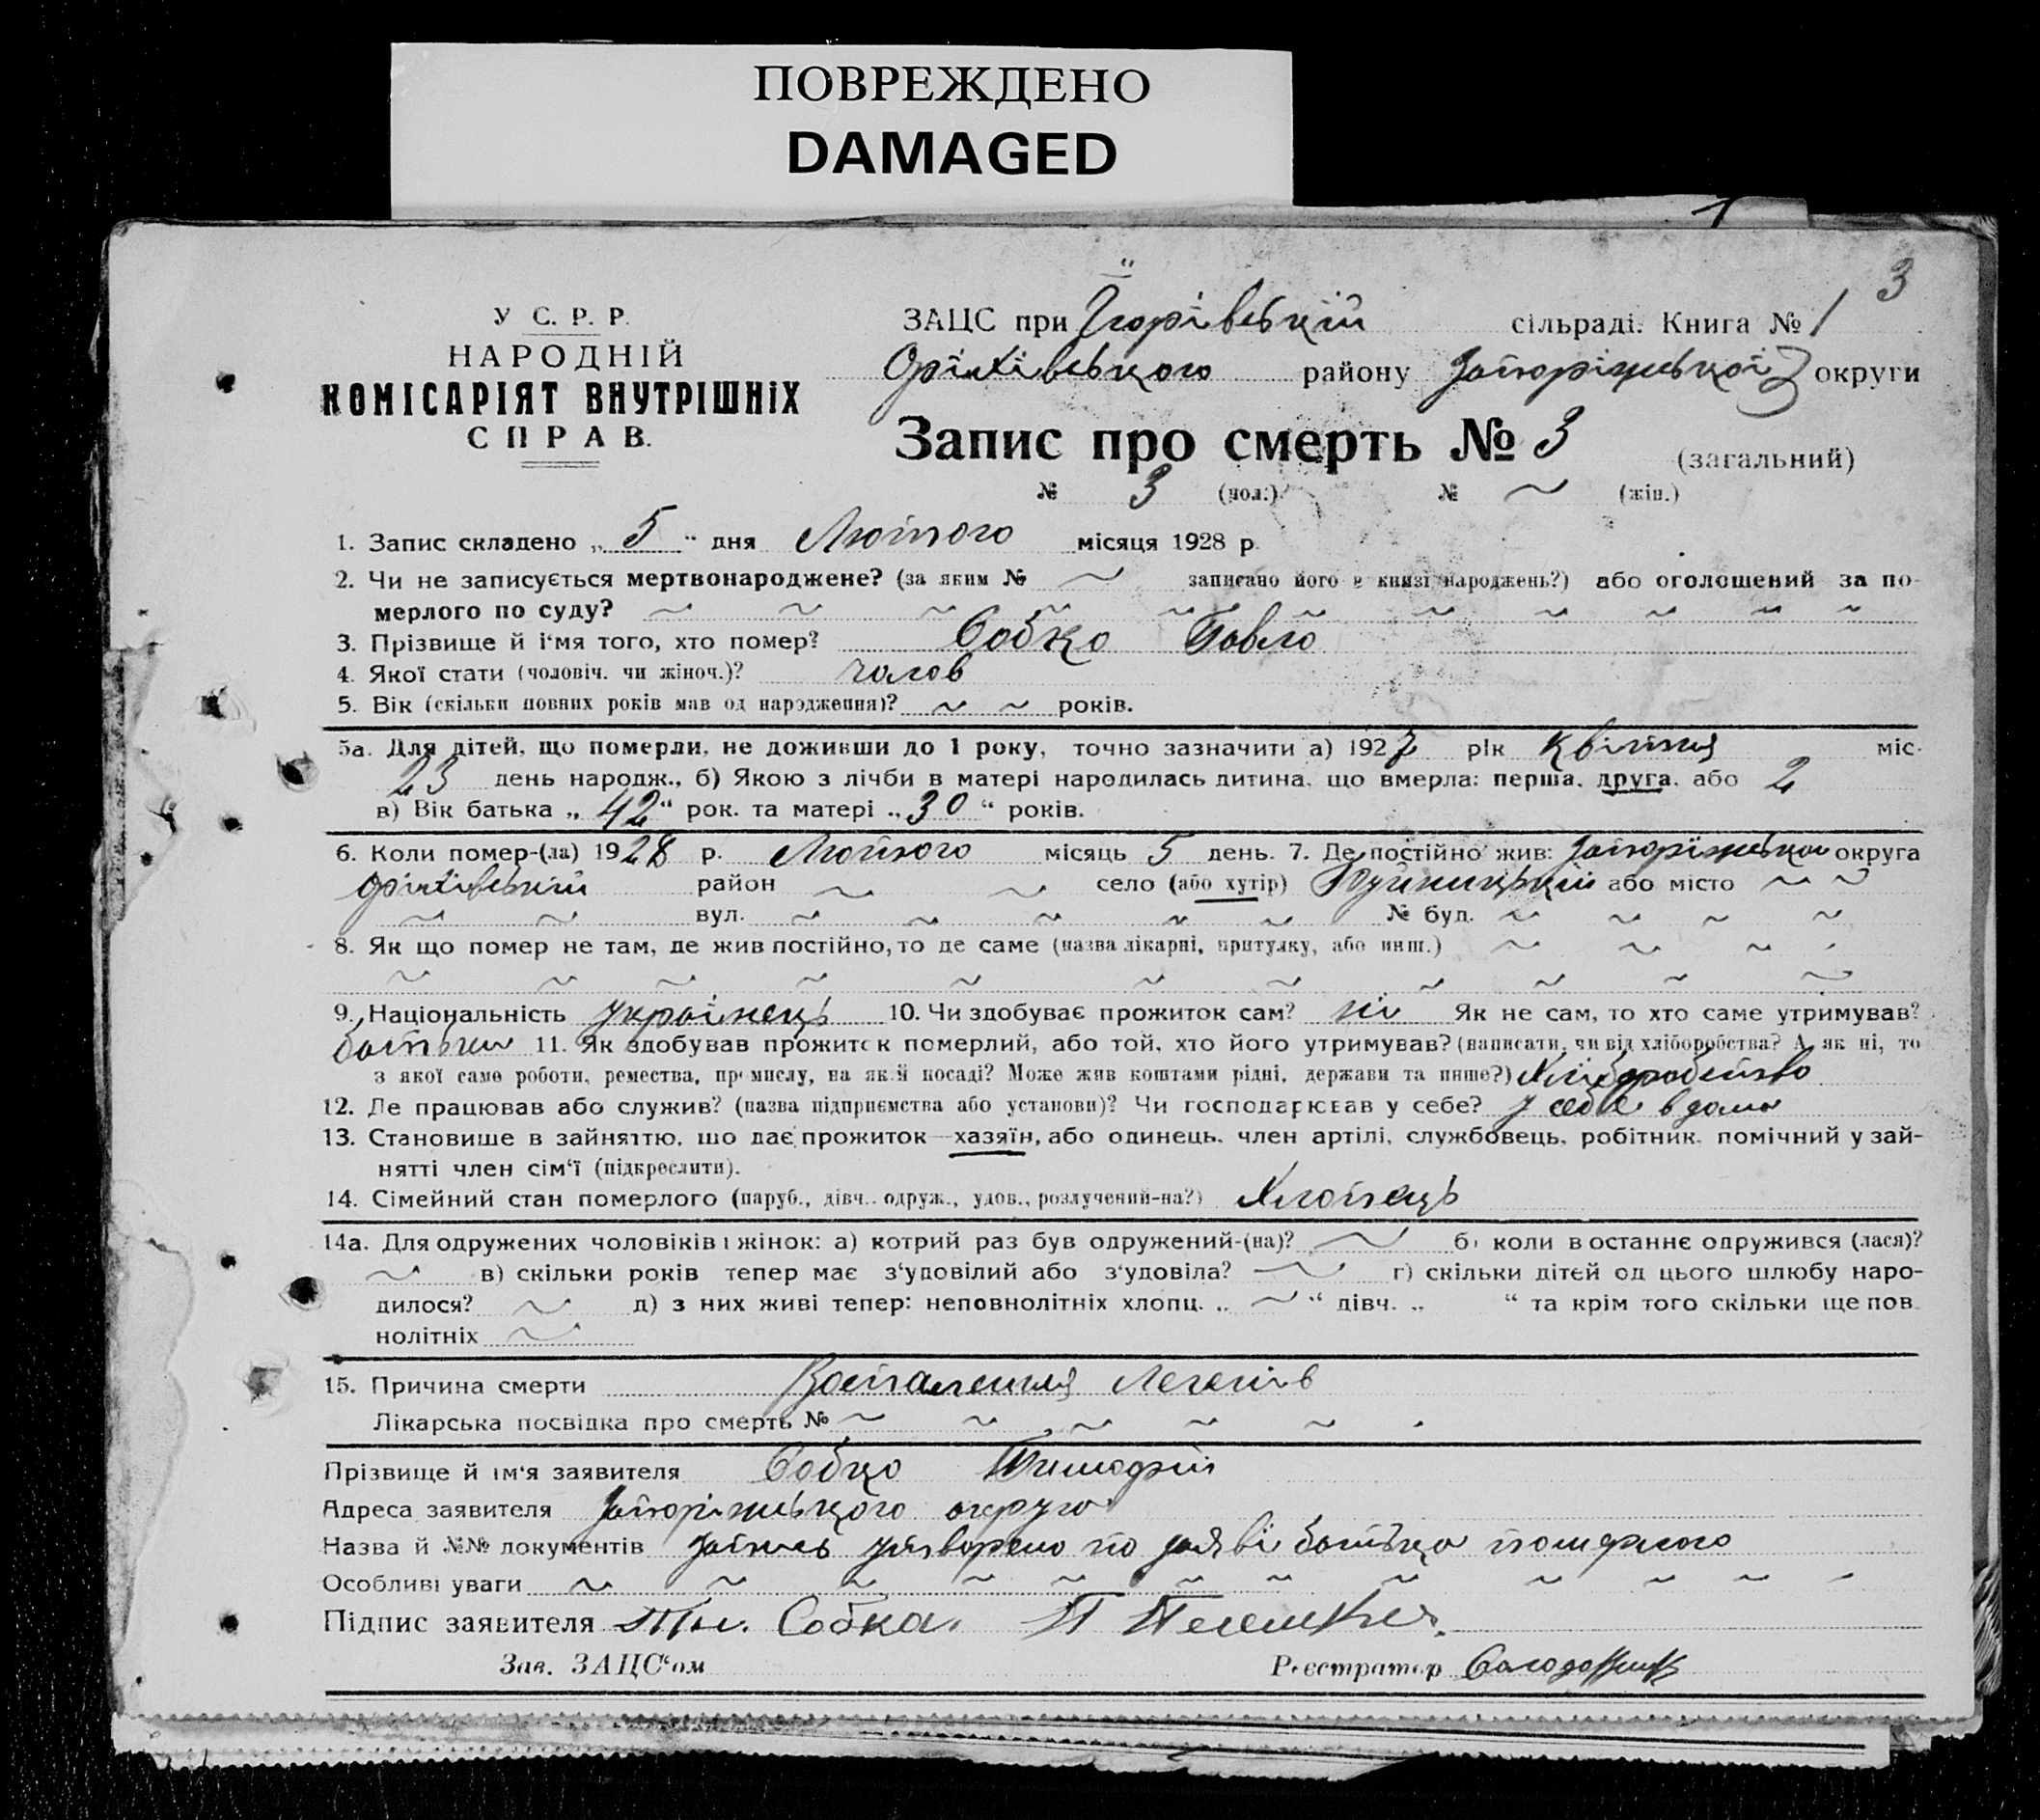 ПОВРЕЖДЕНО
DAMAGED
1
3
У С. Р. Р.
НАРОДНІЙ
КОМІСАРІЯТ ВНУТРІШНІХ
СПРАВ.
ЗАЦС при сільраді. Книга № 1
Оріхівського району Запоріжської округи
Запис про смерть № 3 (загальний)
№ 3 (чол.) № ~ (жін.)
1. Запис складено „ 5 “ дня Лютого місяця 1928 р.
2. Чи не записується мертвонароджене? (за яким № ~ записано його в книзі народжень?) або оголошений за по-
мерлого по суду? ~ ~ ~ ~ ~ ~ ~ ~ ~ ~ ~
3. Прізвище й і'мя того, хто помер? Собко Павло
4. Якої стати (чоловіч. чи жіноч.)? чолов
5. Вік (скільки повних років мав од народження)? ~ ~ років.
5а. Для дітей, що померли, не доживши до 1 року, точно зазначити а) 1927 рік Квітня міс.
23 день народж., б) Якою з лічби в матері народилась дитина, що вмерла: перша, друга, або 2
в) Вік батька „ 42 “ рок. та матері „ 30 “ років.
6. Коли помер-(ла) 1928 р. Лютого місяць 5 день. 7. Де постійно жив: Запоріжська округа
Оріхівський район ~ ~ село (або хутір) або місто ~ ~
~ ~ вул. ~ ~ ~ ~ ~ № буд. ~ ~ ~ ~
8. Як що помер не там, де жив постійно, то де саме (назва лікарні, притулку, або инш.) ~ ~ ~
~ ~ ~ ~ ~ ~ ~ ~ ~ ~ ~
9. Національність українець 10. Чи здобуває прожиток сам? ні Як не сам, то хто саме утримував?
батьки 11. Як здобував прожиток померлий, або той, хто його утримував? (написати, чи від хліборобства? А як ні, то
з якої саме роботи, ремества, промислу, на якій посаді? Може жив коштами рідні, держави та инше?) Хліборобство
12. Де працював або служив? (назва підприємства або установи)? Чи господарював у себе? у себе вдома
13. Становище в зайняттю, що дає прожиток—хазяїн, або одинець, член артілі, службовець, робітник, помічний у зай-
нятті член сім'ї (підкреслити).
14. Сімейний стан померлого (паруб., дівч., одруж., удов., розлучений-на?) Хлопець
14а. Для одружених чоловіків і жінок: а) котрий раз був одружений-(на)? ~ б) коли в останнє одружився (лася)?
~ в) скільки років тепер має з'удовілий або з'удовіла? ~ г) скільки дітей од цього шлюбу наро-
дилося? ~ д) з них живі тепер: неповнолітніх хлопц. „ ~ “ дівч. „ “ та крім того скільки ще пов-
нолітніх ~
15. Причина смерти Воспаления Легенів
Лікарська посвідка про смерть № ~ ~ ~ ~ ~
Прізвище й ім'я заявителя Собко Тимофій
Адреса заявителя Запоріжського округа
Назва й №№ документів Запись утворено по заяві батька померлого
Особливі уваги ~ ~ ~ ~ ~ ~ ~ ~ ~ ~ ~
Підпис заявителя Тим. Собка.
Зав. ЗАЦС'ом Реєстратор